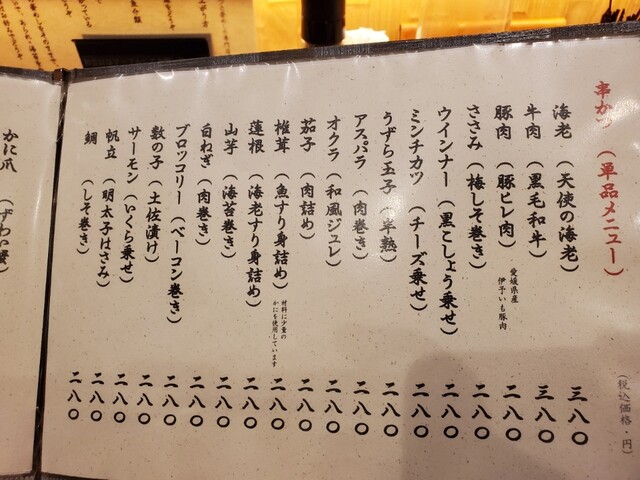 串か （単品メニュー）
（税込価格・円）
海老（天使の海老） 三八〇
牛肉（黒毛和牛） 三八〇
豚肉（豚ヒレ肉） 愛媛県産 伊予いも豚肉 二八〇
ささみ（梅しそ巻き） 二八〇
ウインナー（黒こしょう乗せ） 二八〇
ミンチカツ（チーズ乗せ） 二八〇
うずら玉子（半熟） 二八〇
アスパラ（肉巻き） 二八〇
オクラ（和風ジュレ） 二八〇
茄子（肉詰め） 二八〇
椎茸（魚すり身詰め） 材料に少量のかにを使用しています 二八〇
蓮根（海老すり身詰め） 二八〇
山芋（海苔巻き） 二八〇
白ねぎ（肉巻き） 二八〇
ブロッコリー（ベーコン巻き） 二八〇
数の子（土佐漬け） 二八〇
サーモン（いくら乗せ） 二八〇
帆立（明太子はさみ） 二八〇
鯛（しそ巻き） 二八〇
かに爪（ずわい蟹）